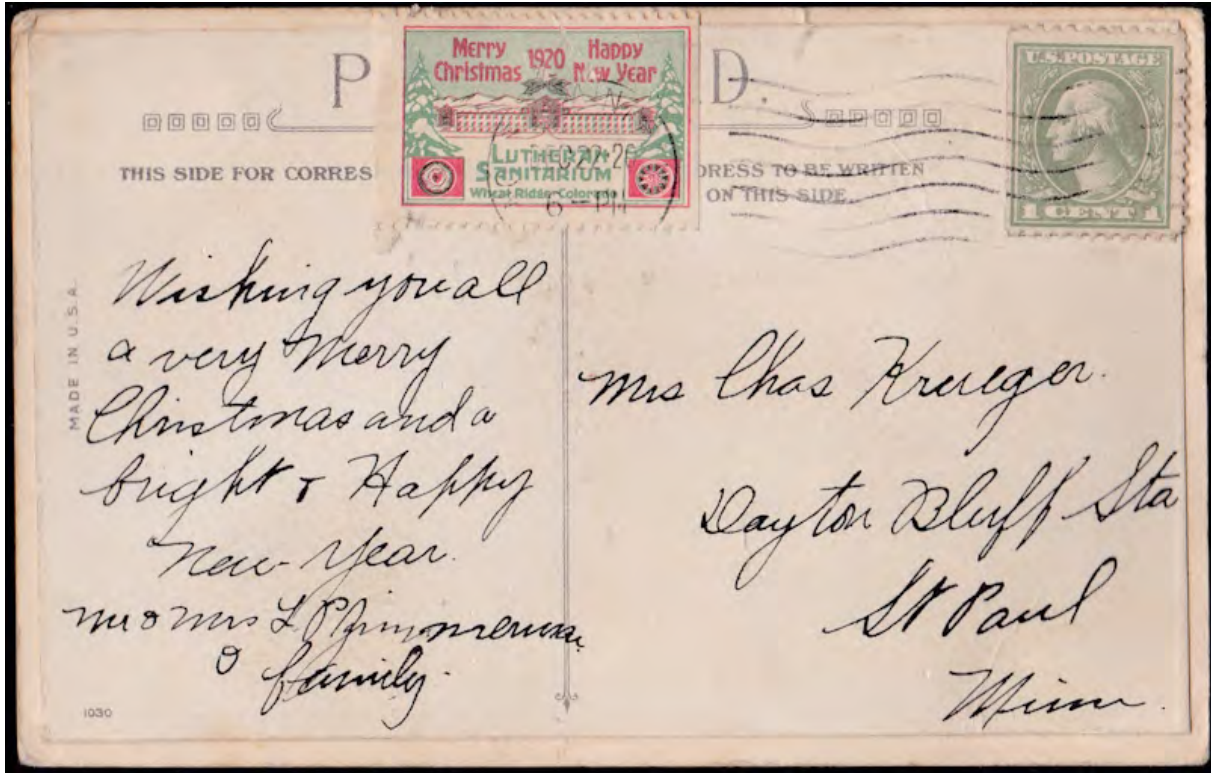 P
D.
Merry Christmas 1920 Happy New Year
LUTHERAN
SANITARIUM
Wheat Ridge Colorado
DEC 22
6 - PM
U.S. POSTAGE
1 CENT 1
THIS SIDE FOR CORRES
DRESS TO BE WRITTEN
ON THIS SIDE.
MADE IN U.S.A.
Wishing you all
a very Merry
Christmas and a
bright & Happy
New Year.
Mr & Mrs L
& family.
1030
Mrs Chas Krueger.
Dayton Bluff Sta
St Paul
Minn.